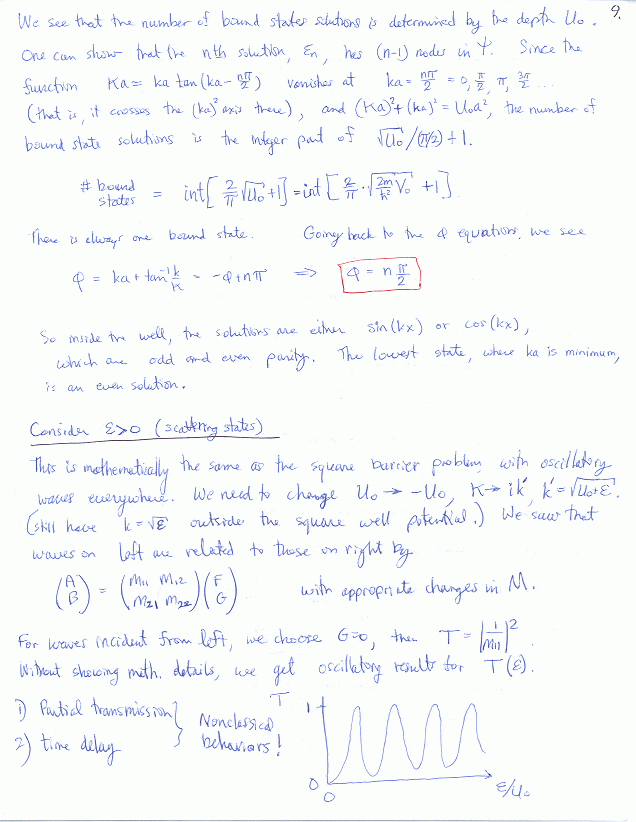 9.
We see that the number of bound states solutions is determined by the depth U₀.
One can show that the nth solution, εₙ, has (n-1) nodes in Ψ. Since the
function Ka = ka tan(ka - nπ/2) vanishes at ka = nπ/2 = 0, π/2, π, 3π/2 ...
(that is, it crosses the (ka)² axis there), and (Ka)² + (ka)² = U₀a², the number of
bound state solutions is the integer part of √U₀/(π/2) + 1.
# bound states = int[2/π √U₀ + 1] = int[2/π · √(2m/ħ² V₀) + 1].
There is always one bound state. Going back to the φ equations, we see
φ = ka + tan⁻¹ k/K = -φ + nπ ⇒ φ = n π/2
So inside the well, the solutions are either sin(kx) or cos(kx),
which are odd and even parity. The lowest state, where ka is minimum,
is an even solution.
Consider ε>0 (scattering states)
This is mathematically the same as the square barrier problem, with oscillatory
waves everywhere. We need to change U₀ → -U₀, K → ik', k' = √U₀+ε.
(still have k = √ε outside the square well potential.) We saw that
waves on left are related to those on right by
(A B) = (M₁₁ M₁₂ M₂₁ M₂₂)(F G) with appropriate changes in M.
For waves incident from left, we choose G=0, then T = |1/M₁₁|².
Without showing math. details, we get oscillatory results for T(ε).
1) Partial transmission
2) time delay
} Nonclassical behaviors!
T
1
0
0
ε/U₀